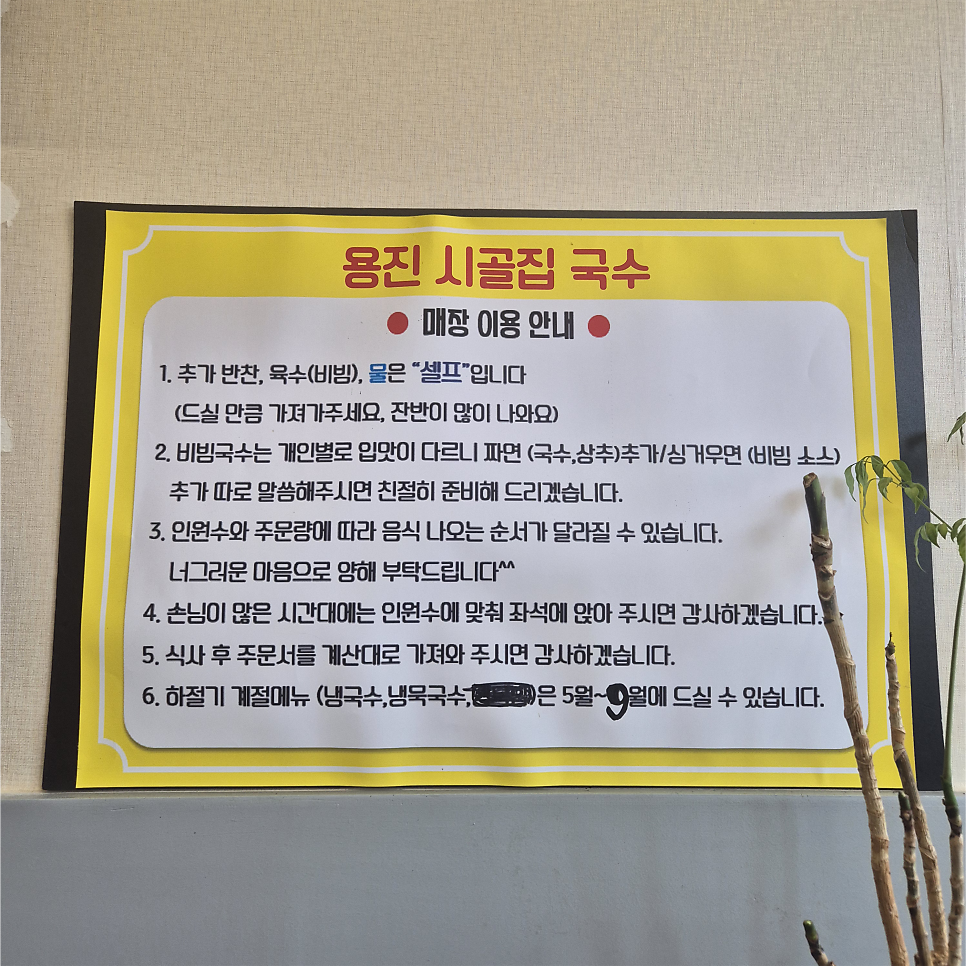 용진 시골집 국수
매장 이용 안내
1. 추가 반찬, 육수(비빔), 물은 “셀프”입니다
(드실 만큼 가져가주세요, 잔반이 많이 나와요)
2. 비빔국수는 개인별로 입맛이 다르니 짜면 (국수,상추)추가/싱거우면 (비빔 소스)
추가 따로 말씀해주시면 친절히 준비해 드리겠습니다.
3. 인원수와 주문량에 따라 음식 나오는 순서가 달라질 수 있습니다.
너그러운 마음으로 양해 부탁드립니다^^
4. 손님이 많은 시간대에는 인원수에 맞춰 좌석에 앉아 주시면 감사하겠습니다.
5. 식사 후 주문서를 계산대로 가져와 주시면 감사하겠습니다.
6. 하절기 계절메뉴 (냉국수,냉묵국수, )은 5월~9월에 드실 수 있습니다.